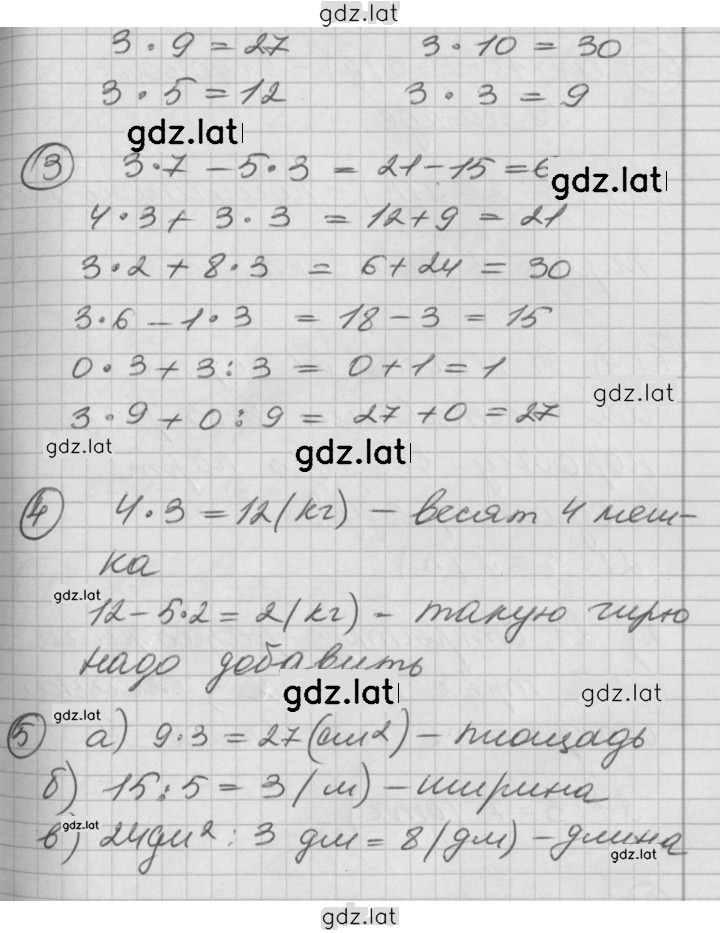 gdz.lat
3 · 9 = 27 3 · 10 = 30
3 · 5 = 12 3 · 3 = 9
gdz.lat
3 3·7 – 5·3 = 21–15 = 6
gdz.lat
4·3 + 3·3 = 12+9 = 21
3·2 + 8·3 = 6+24 = 30
3·6 – 1·3 = 18 – 3 = 15
0·3 + 3:3 = 0+1 = 1
gdz.lat
3·9 + 0:9 = 27+0 = 27
gdz.lat
gdz.lat
4 4·3 = 12 (кг) – весят 4 меш-
ка
gdz.lat
12–5·2 = 2 (кг) – такую гирю
надо добавить
gdz.lat
gdz.lat
gdz.lat
5 а) 9·3 = 27 (см²) – площадь
б) 15:5 = 3 (м) – ширина
gdz.lat
в) 24дм² : 3 дм = 8 (дм) – длина
gdz.lat
gdz.lat